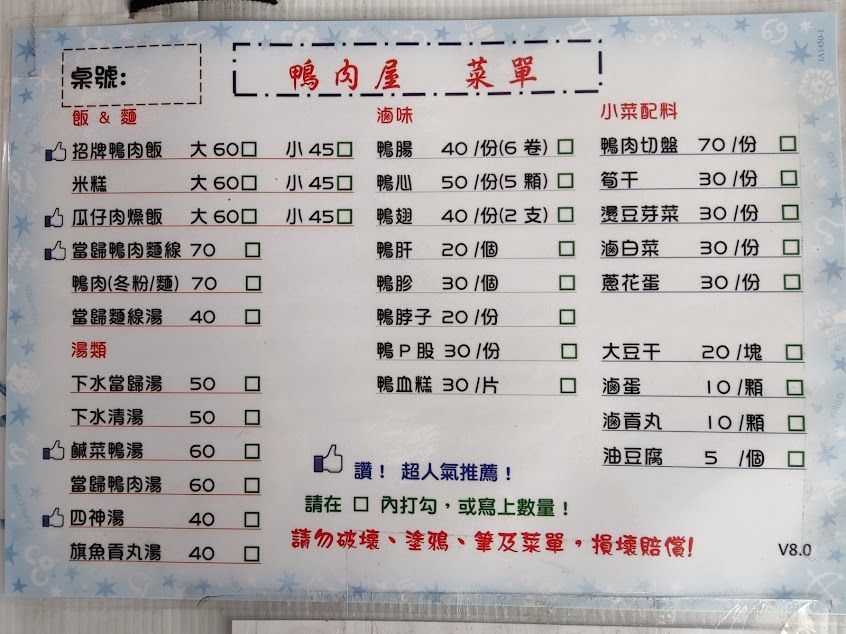 桌號:
鴨肉屋 菜單
飯 & 麵
招牌鴨肉飯 大 60□ 小 45□
米糕 大 60□ 小 45□
瓜仔肉燥飯 大 60□ 小 45□
當歸鴨肉麵線 70 □
鴨肉(冬粉/麵) 70 □
當歸麵線湯 40 □
湯類
下水當歸湯 50 □
下水清湯 50 □
鹹菜鴨湯 60 □
當歸鴨肉湯 60 □
四神湯 40 □
旗魚貢丸湯 40 □
滷味
鴨腸 40 /份(6 卷) □
鴨心 50 /份(5 顆) □
鴨翅 40 /份(2 支) □
鴨肝 20 /個 □
鴨胗 30 /個 □
鴨脖子 20 /份 □
鴨 P 股 30 /份 □
鴨血糕 30 /片 □
小菜配料
鴨肉切盤 70 /份 □
筍干 30 /份 □
燙豆芽菜 30 /份 □
滷白菜 30 /份 □
蔥花蛋 30 /份 □
大豆干 20 /塊 □
滷蛋 10 /顆 □
滷貢丸 10 /顆 □
油豆腐 5 /個 □
讚！ 超人氣推薦！
請在 □ 內打勾，或寫上數量！
請勿破壞、塗鴉、筆及菜單，損壞賠償!
V8.0
1A1450-1